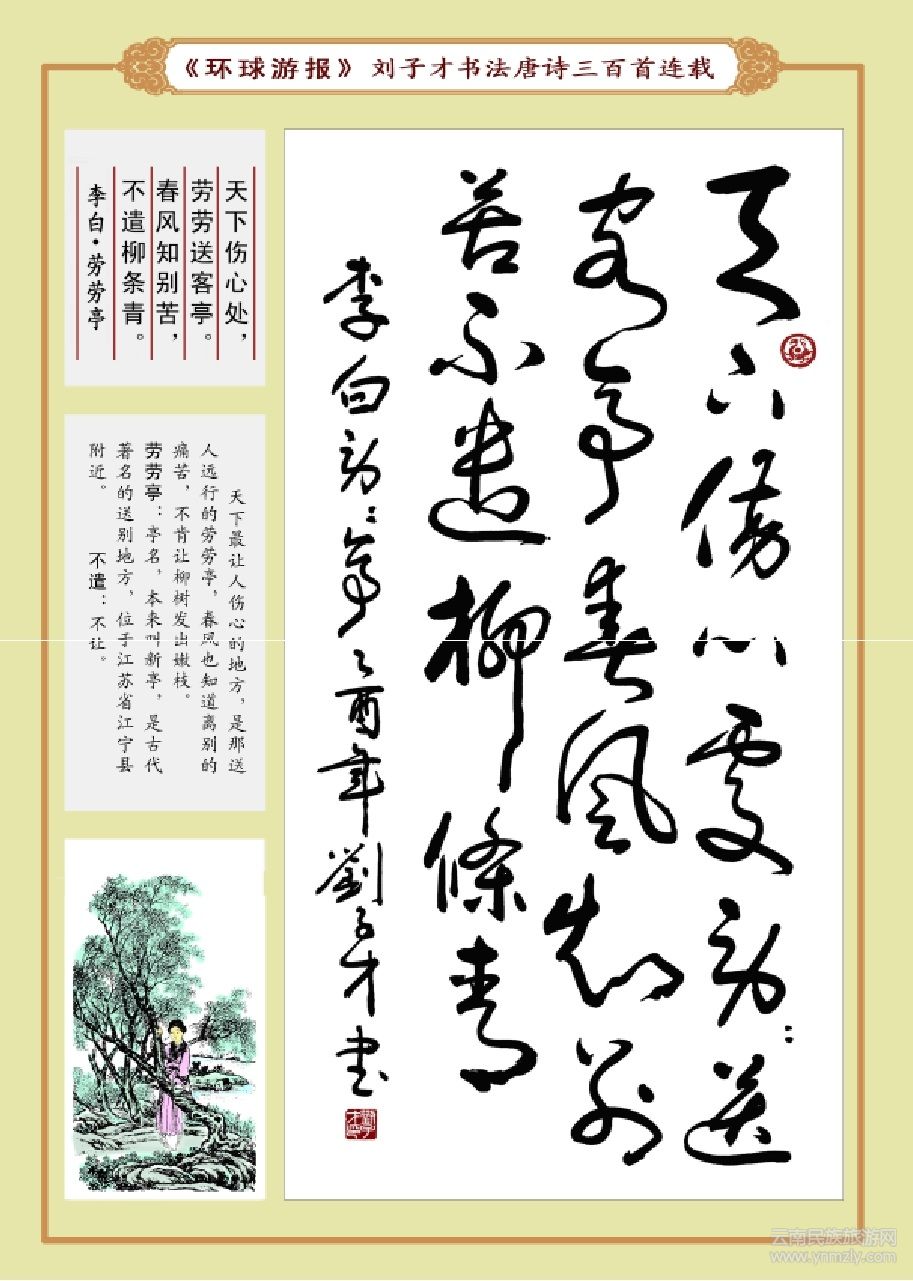 《环球游报》刘子才书法唐诗三百首连载
天下伤心处，
劳劳送客亭。
春风知别苦，
不遣柳条青。
李白·劳劳亭
天下最让人伤心的地方，是那送
人远行的劳劳亭，春风也知道离别的
痛苦，不肯让柳树发出嫩枝。
劳劳亭：亭名，本来叫新亭，是古代
著名的送别地方，位于江苏省江宁县
附近。 不遣：不让。
天下傷心處勞〻送
客亭春風知別
苦不遣柳條青
李白勞〻亭乙酉年劉子才書
云南民族旅游网
www.ynmzly.com